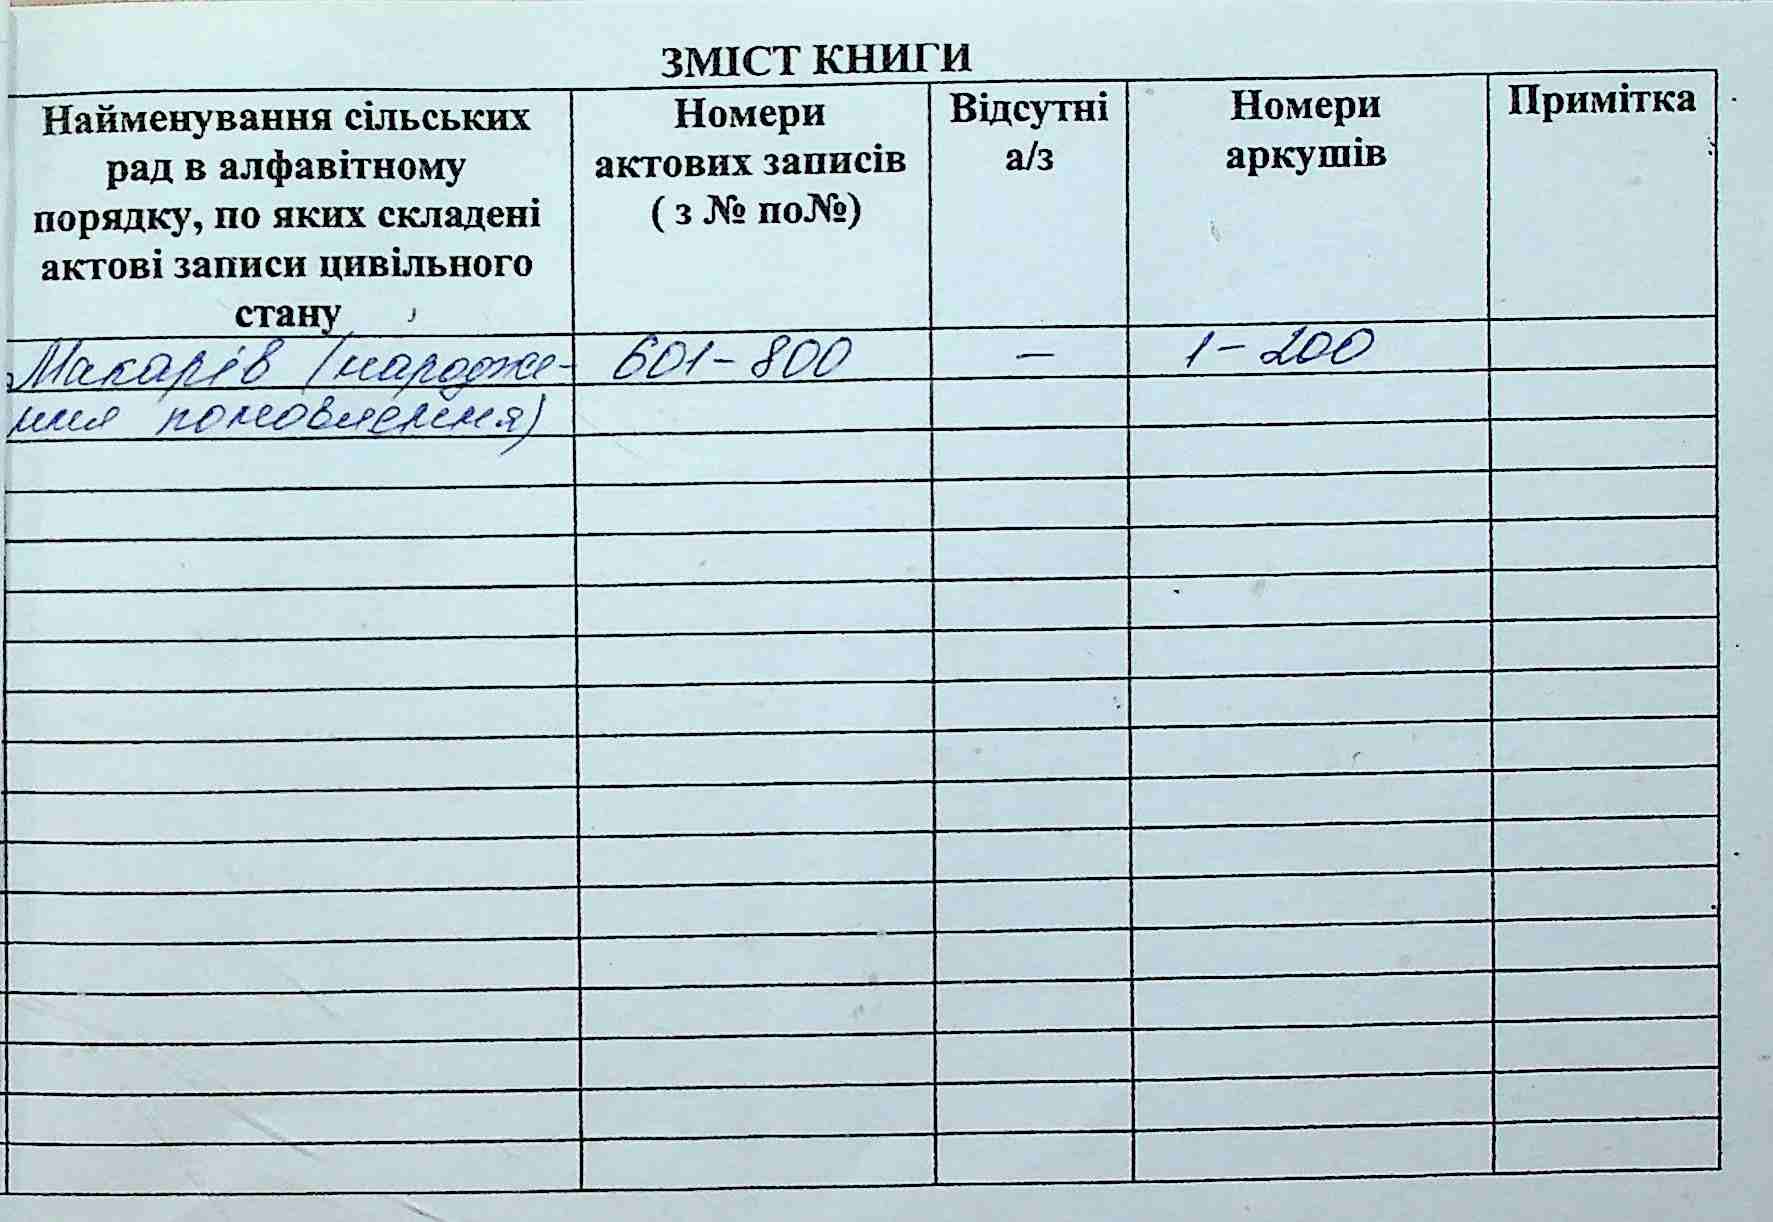 ЗМІСТ КНИГИ
Найменування сільських
рад в алфавітному
порядку, по яких складені
актові записи цивільного
стану
Номери
актових записів
( з № по№)
Відсутні
а/з
Номери
аркушів
Примітка
Макарів (народже-
ння поновлення)
601-800
—
1-200